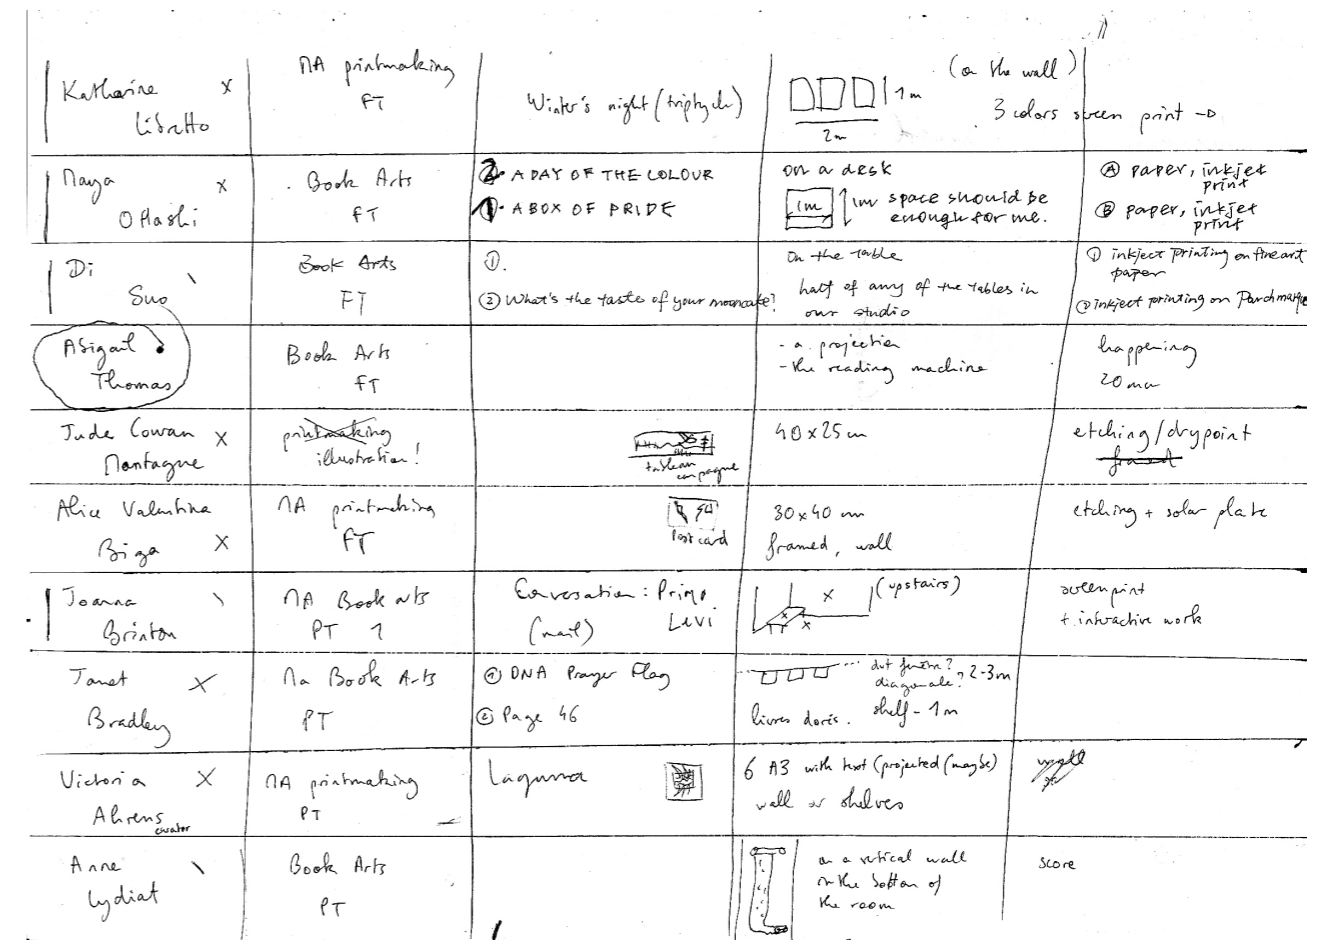 Katharine x
Libretto
MA printmaking
FT
Winter's night (triptych)
1m
2m
(on the wall)
3 colors screen print
Naya x
OHashi
Book Arts
FT
2. A DAY OF THE COLOUR
1. A BOX OF PRIDE
on a desk
1m 1m space should be
enough for me.
A paper, inkjet
print
B paper, inkjet
print
Di
Suo
Book Arts
FT
①.
② What's the taste of your mooncake?
On the table
half of any of the tables in
our studio
① inkject printing on fine art
paper
② inkject printing on
Abigail
Thomas
Book Arts
FT
- a projection
- the reading machine
happening
Jude Cowan x
Montague
printmaking
illustration!
tableau
40x25cm
etching/drypoint
framed
Alice Valentina
Biga x
MA printmaking
FT
Postcard
30x40 cm
framed, wall
etching + solar plate
Joanna
Brinton
MA Book arts
PT 1
Conversation: Primo
Levi
(mail)
(upstairs)
screenprint
+ interactive work
Janet x
Bradley
Ma Book Arts
PT
① DNA Prayer Flag
② Page 46
diagonale? 2-3m
livres shelf - 1m
Victoria x
Ahrens
curator
MA printmaking
PT
Laguna
6 A3 with text (projected (maybe)
wall or shelves
wall
Anne
Lydiat
Book Arts
PT
on a vertical wall
in the bottom of
the room
score